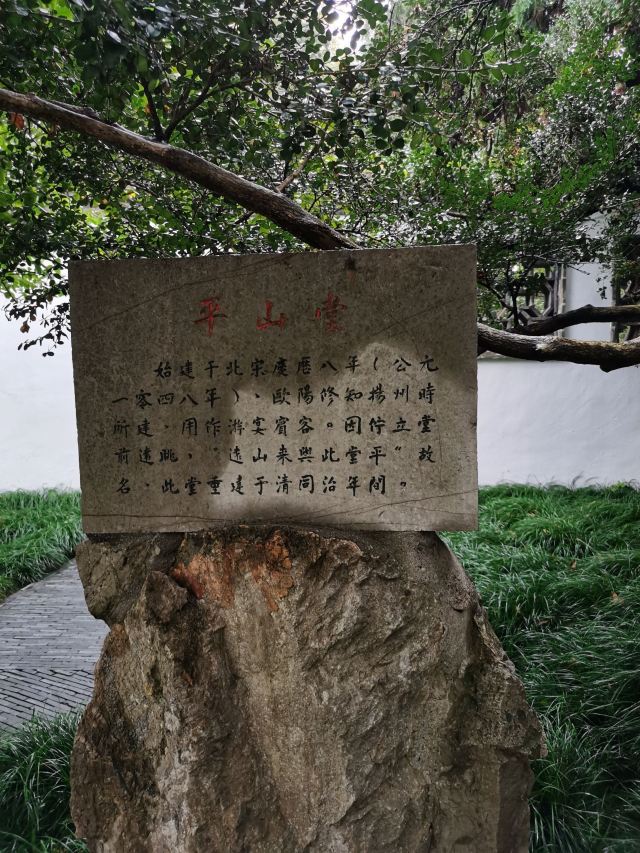 平山堂
始建于北宋慶曆八年（公元
一零四八年），歐陽修知揚州時
所建，用作游宴賓客。因佇立堂
前遠眺，“遠山来與此堂平”故
名，此堂重建于清同治年間。